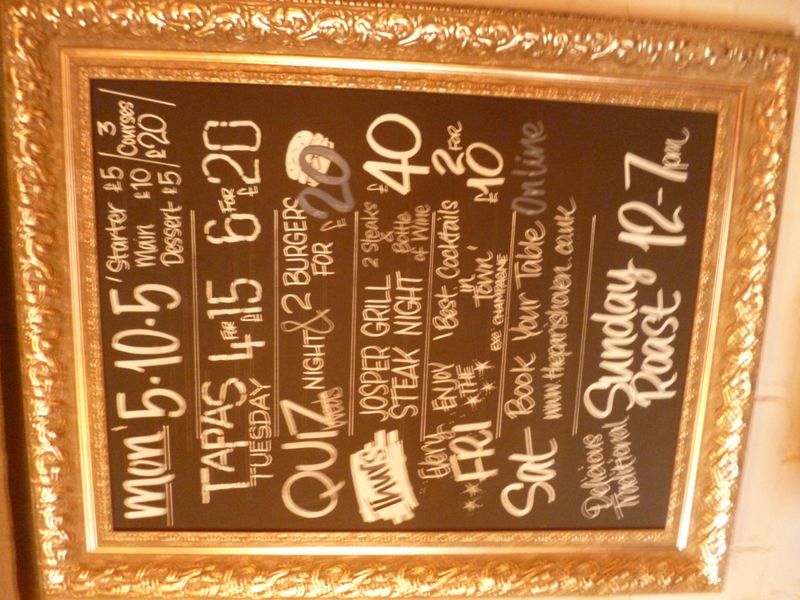 Mon' 5·10·5 / Starter £5 / 3
Main £10 / Courses
Dessert £5 / £20 /
TAPAS 4 FOR £15 6 FOR £20
TUESDAY
QUIZ NIGHT & 2 BURGERS
FOR £20
Thurs JOSPER GRILL 2 Steaks £40
STEAK NIGHT & Bottle
of Wine
Every FRI ENJOY 'Best Cocktails 2 FOR
THE in Town' £10
EXC CHAMPAGNE
Sat Book Your Table Online
www.theparishaven.co.uk
Delicious Sunday 12-7pm
Traditional Roast